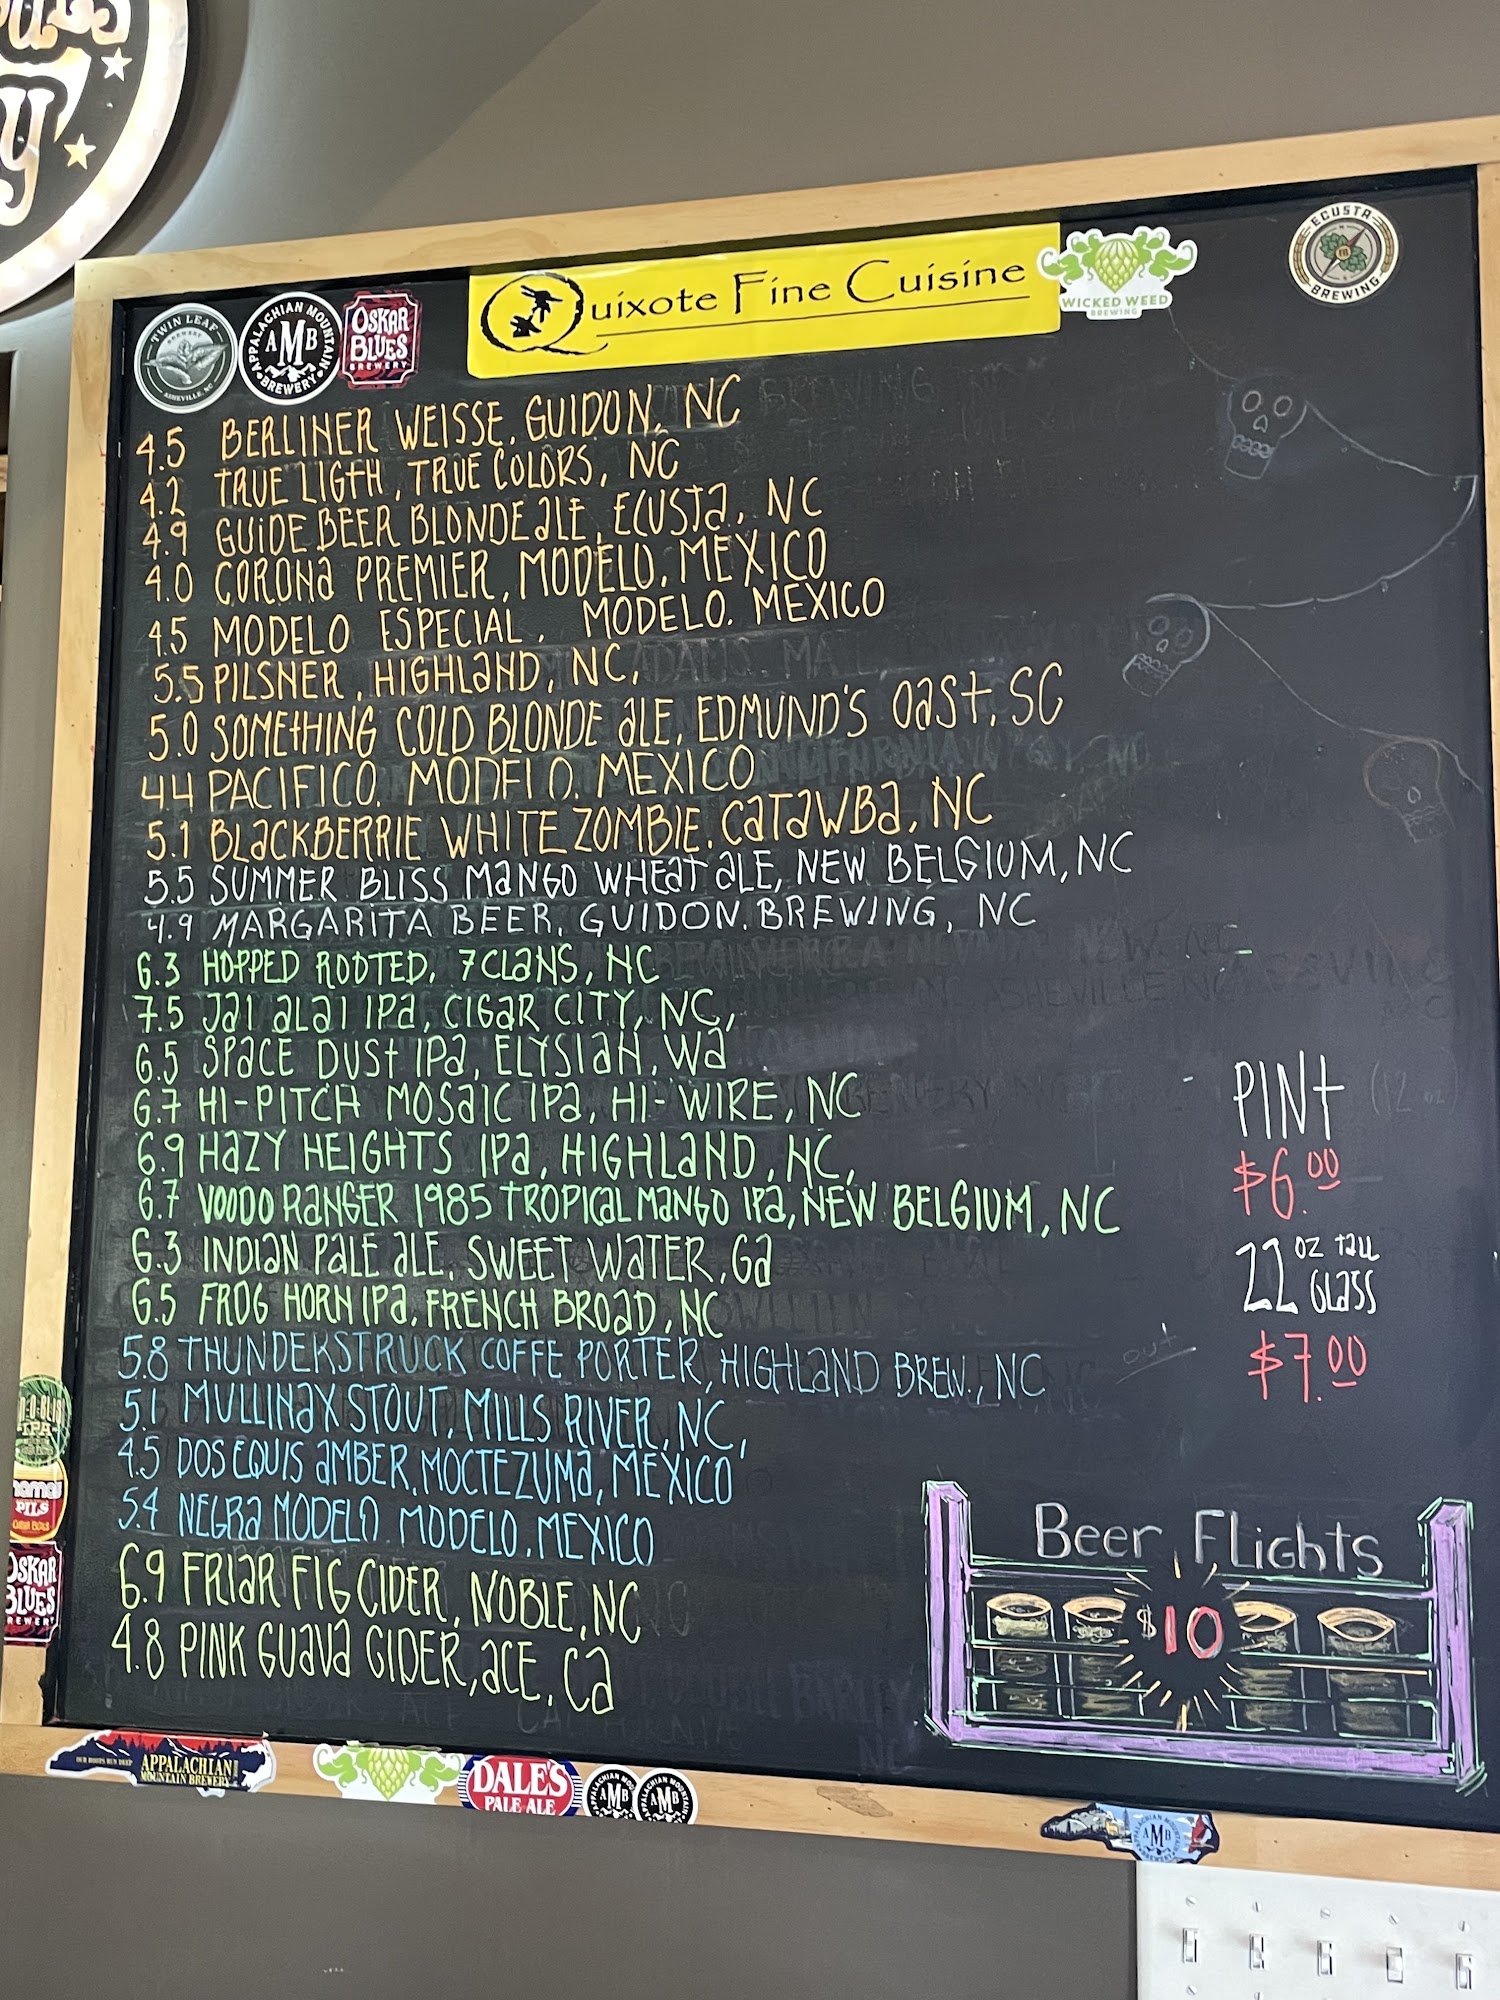 TWIN LEAF
BREWERY
ASHEVILLE, NC
APPALACHIAN MOUNTAIN
AMB
BREWERY
OSKAR
BLUES
BREWERY
Quixote Fine Cuisine
WICKED WEED
BREWING
ECUSTA
BREWING
4.5 BERLINER WEISSE, GUIDON, NC
4.2 TRUE LIGTH, TRUE COLORS, NC
4.9 GUIDE BEER BLONDE ALE, ECUSTA, NC
4.0 CORONA PREMIER, MODELO, MEXICO
4.5 MODELO ESPECIAL, MODELO. MEXICO
5.5 PILSNER, HIGHLAND, NC,
5.0 SOMETHING COLD BLONDE ALE, EDMUND'S OAST, SC
4.4 PACIFICO, MODELO, MEXICO
5.1 BLACKBERRIE WHITE ZOMBIE, CATAWBA, NC
5.5 SUMMER BLISS MANGO WHEAT ALE, NEW BELGIUM, NC
4.9 MARGARITA BEER, GUIDON. BREWING, NC
6.3 HOPPED ROOTED, 7 CLANS, NC
7.5 JAI ALAI IPA, CIGAR CITY, NC,
6.5 SPACE DUST IPA, ELYSIAN, WA
6.7 HI-PITCH MOSAIC IPA, HI-WIRE, NC
6.9 HAZY HEIGHTS IPA, HIGHLAND, NC,
6.7 VOODO RANGER 1985 TROPICAL MANGO IPA, NEW BELGIUM, NC
6.3 INDIAN PALE ALE, SWEET WATER, GA
6.5 FROG HORN IPA, FRENCH BROAD, NC
5.8 THUNDERSTRUCK COFFE PORTER, HIGHLAND BREW., NC
out
5.1 MULLINAX STOUT, MILLS RIVER, NC,
4.5 DOS EQUIS AMBER, MOCTEZUMA, MEXICO
5.4 NEGRA MODELO. MODELO, MEXICO
6.9 FRIAR FIG CIDER, NOBLE, NC
4.8 PINK GUAVA CIDER, ACE, CA
PINT
$6.00
22 OZ TALL
GLASS
$7.00
Beer Flights
$10
IPA
PILS
OSKAR
BLUES
BREWERY
OUR ROOTS RUN DEEP
APPALACHIAN
MOUNTAIN BREWERY
DALE'S
PALE ALE
AMB
AMB
AMB